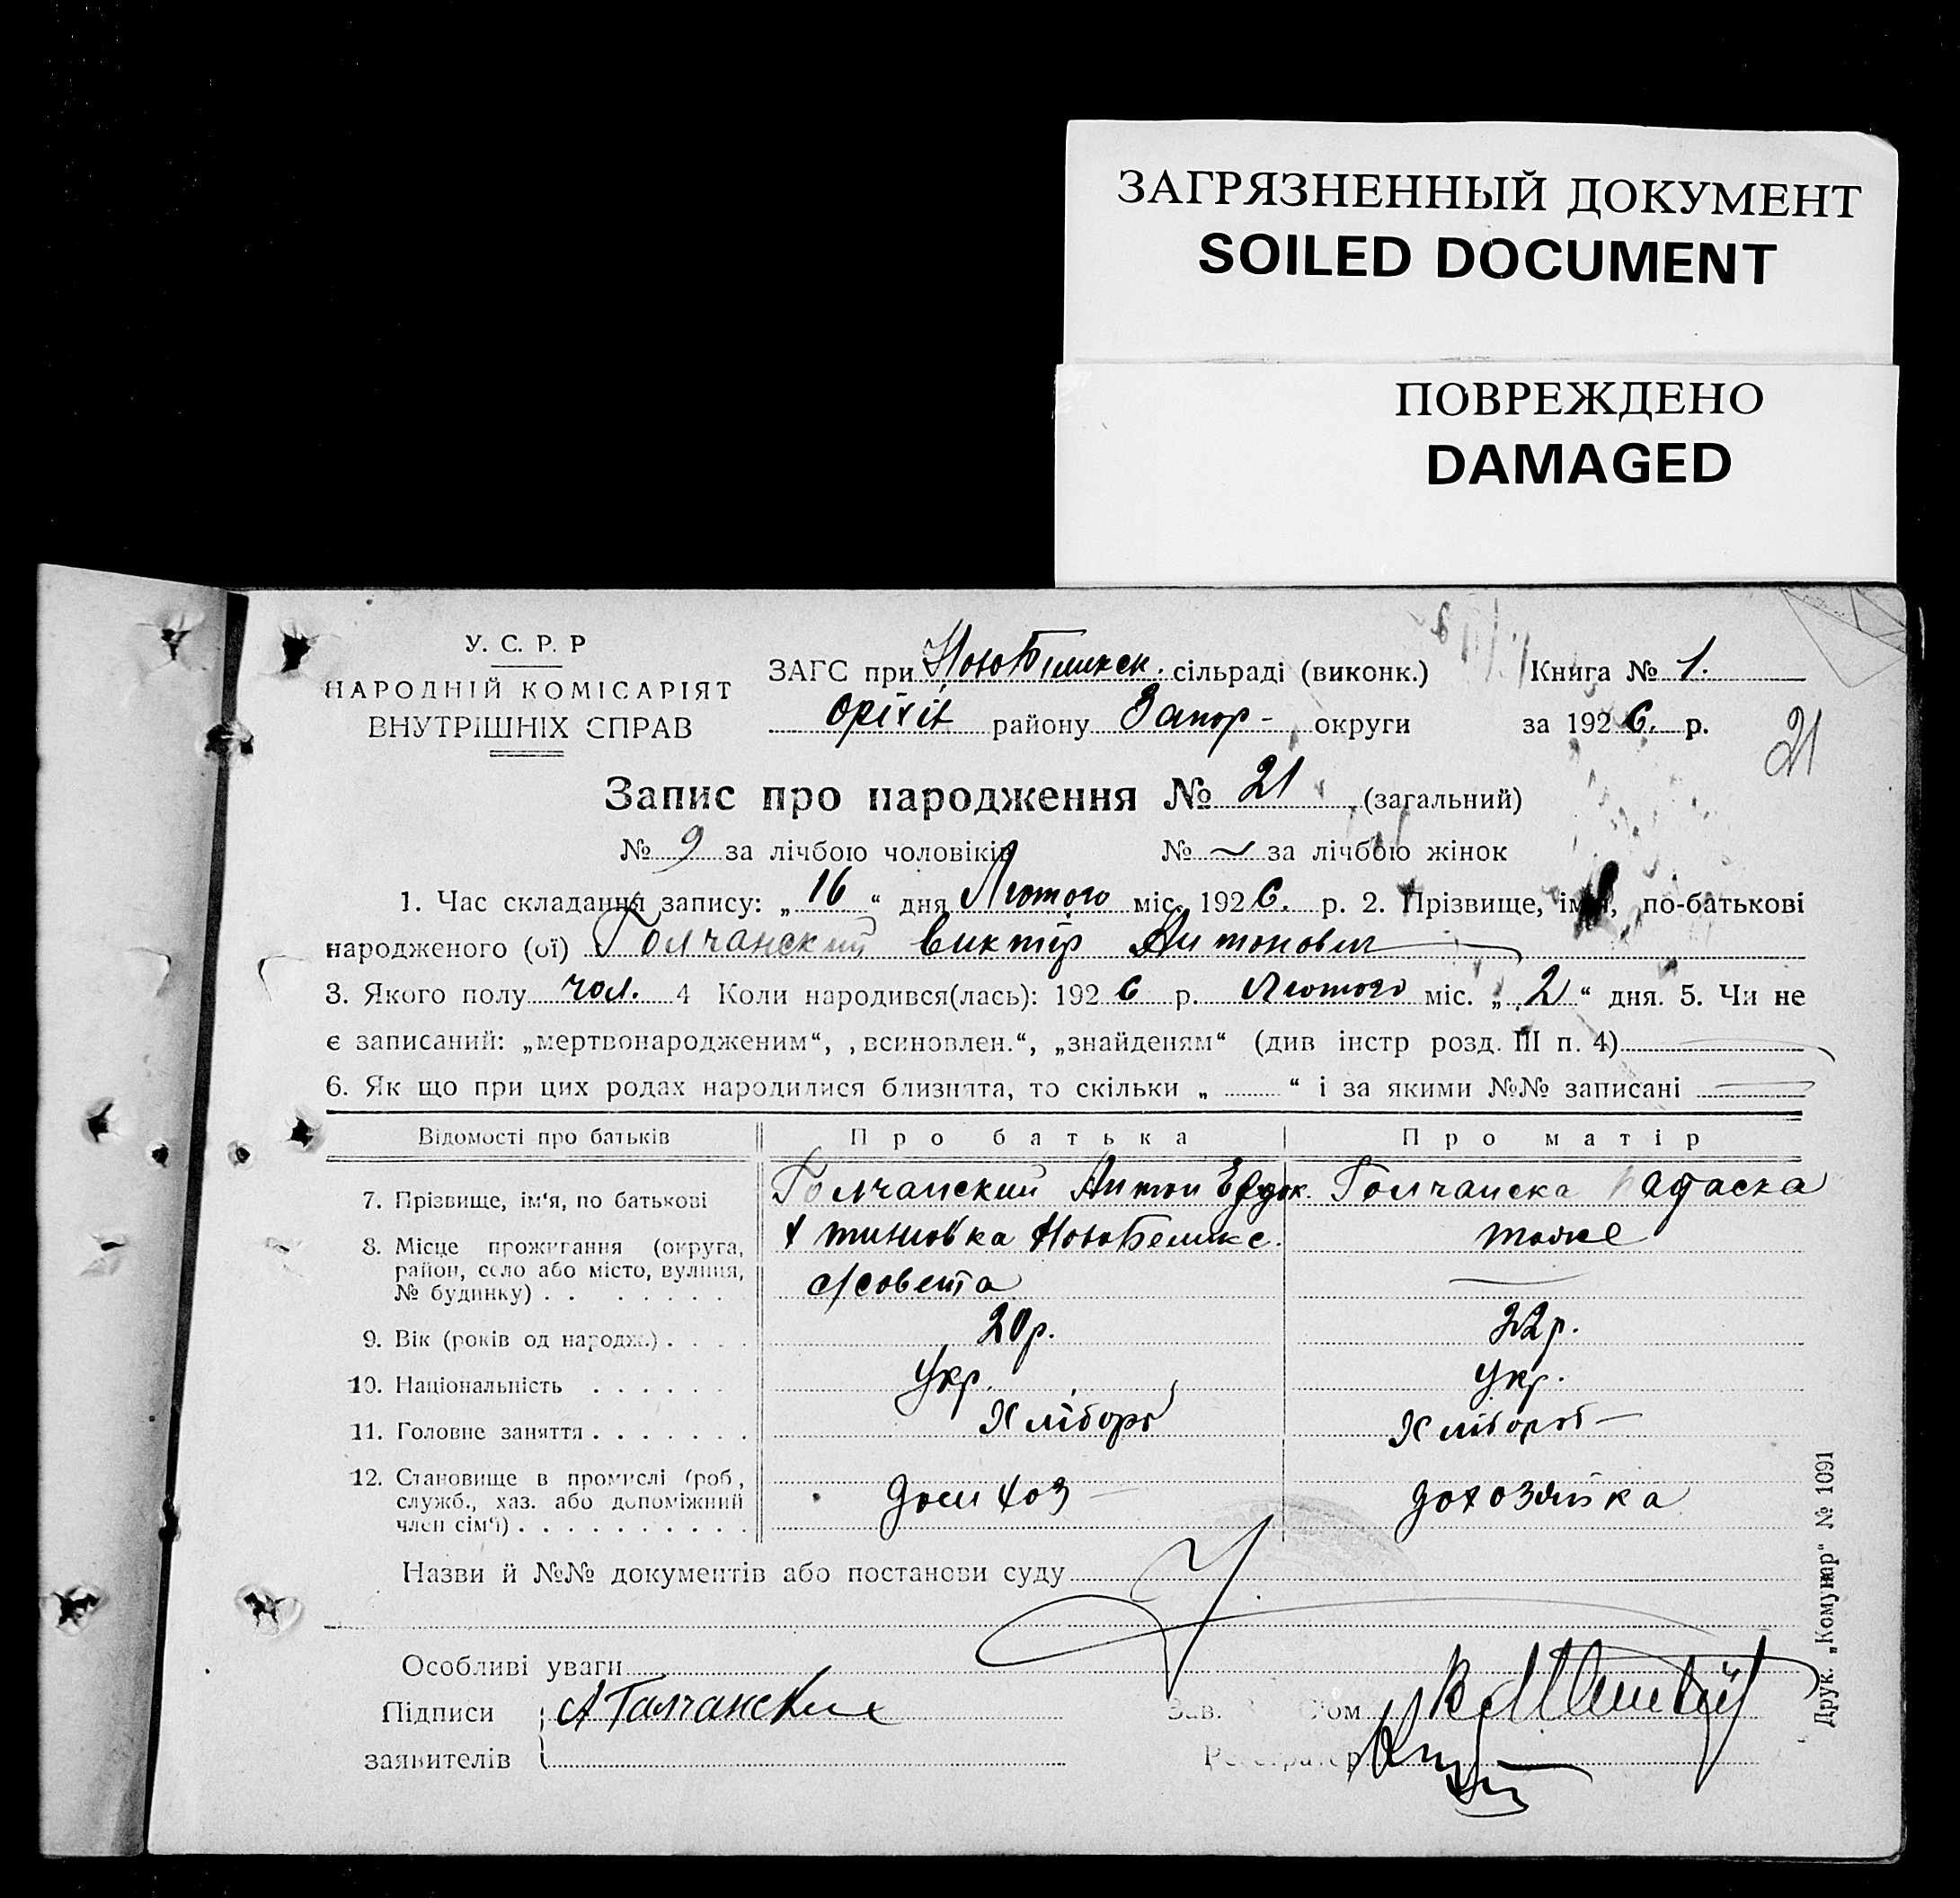 ЗАГРЯЗНЕННЫЙ ДОКУМЕНТ
SOILED DOCUMENT
ПОВРЕЖДЕНО
DAMAGED
У. С. Р. Р
НАРОДНІЙ КОМІСАРІЯТ
ВНУТРІШНІХ СПРАВ
ЗАГС при сільраді (виконк.) Книга № 1.
Оріхів району Запор- округи за 1926. р.
21
Запис про народження № 21 (загальний)
№ 9 за лічбою чоловіків № за лічбою жінок
1. Час складання запису: „16“ дня Лютого міс. 1926. р. 2. Прізвище, ім'я, по-батькові
народженого (ої) Голчанский Виктір Антонович
3. Якого полу чол. 4 Коли народився(лась): 1926 р. Лютого міс. „2“ дня. 5. Чи не
є записаний: „мертвонародженим“, „всиновлен.“, „знайденям“ (див інстр розд. III п. 4)
6. Як що при цих родах народилися близнята, то скільки „ “ і за якими №№ записані
Відомості про батьків Про батька Про матір
7. Прізвище, ім'я, по батькові Голчанский Антон Евдок. Голчанска
8. Місце прожигання (округа, район, село або місто, вулиця, № будинку)
с/совета
тоже
9. Вік (років од народж.) 20р. 22р.
10. Національність Укр. Укр.
11. Головне заняття Хлібороб Хлібороб
12. Становище в промислі (роб., служб., хаз. або допоміжний член сім'ї) домохоз дохозяйка
Назви й №№ документів або постанови суду
Особливі уваги
Підписи заявителів А Галчанский
Зав.
Регістратор
Друк. „Комунар“ № 1091